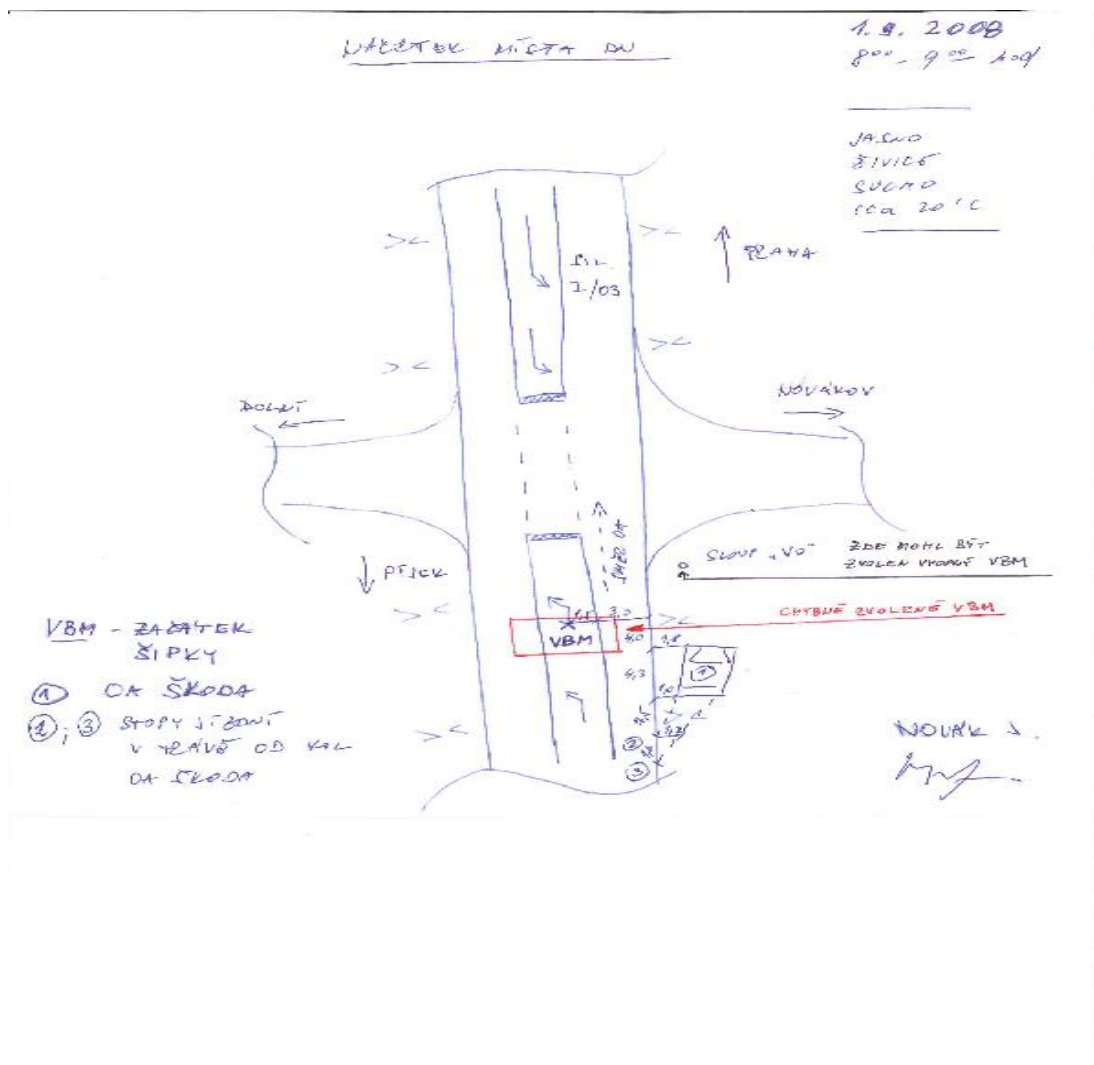 NÁČRTEK MÍSTA DN
1.9. 2008
8⁰⁰ - 9⁰⁰ hod
JASNO
ŽIVICE
SUCHO
cca 20°C
PRAHA
SIL.
I/03
DOLNÍ
NOVÁKOV
SMĚR OA
PÍSEK
SLOUP "VO"
ZDE MOHL BÝT
ZVOLEN VHODNÝ VBM
CHYBNĚ ZVOLENÉ VBM
VBM
3,0
4,0
1,8
4,3
1,0
1
2
3
VBM - ZAČÁTEK
ŠIPKY
1 OA ŠKODA
2; 3 STOPY JÍZDNÍ
V TRÁVĚ OD KOL
OA ŠKODA
NOVÁK J.